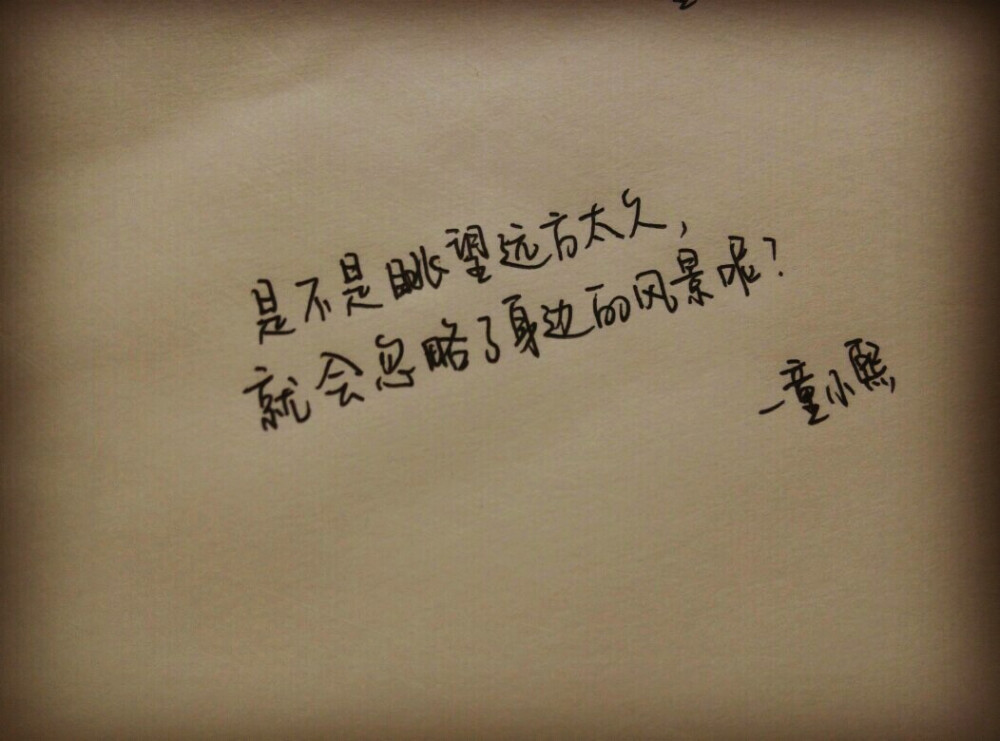 是不是眺望远方太久,
就会忽略了身边的风景呢?
—童小熙